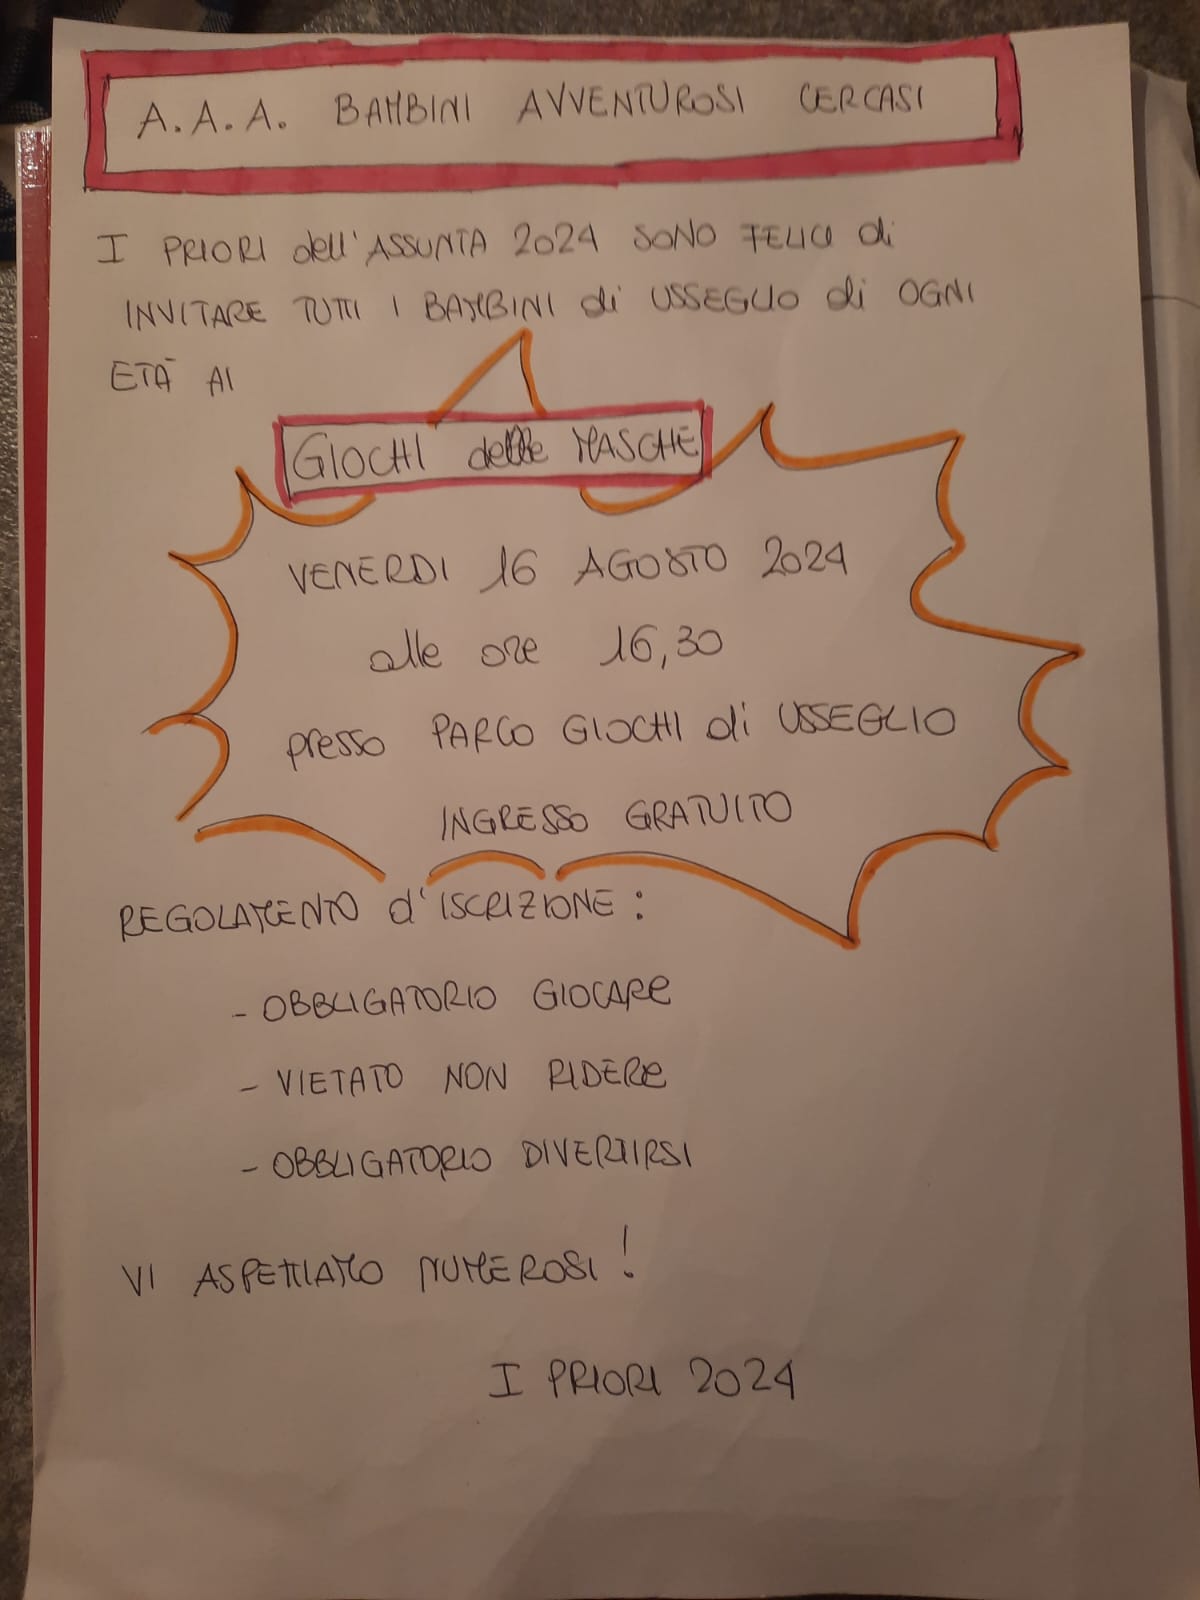 A.A.A. BAMBINI AVVENTUROSI CERCASI
I PRIORI dell'ASSUNTA 2024 SONO FELICI di
INVITARE TUTTI I BAMBINI di USSEGLIO di OGNI
ETÀ AI
GIOCHI delle MASCHE
VENERDI 16 AGOSTO 2024
alle ore 16,30
presso PARCO GIOCHI di USSEGLIO
INGRESSO GRATUITO
REGOLAMENTO d'ISCRIZIONE:
- OBBLIGATORIO GIOCARE
- VIETATO NON RIDERE
- OBBLIGATORIO DIVERTIRSI
VI ASPETTIAMO NUMEROSI!
I PRIORI 2024